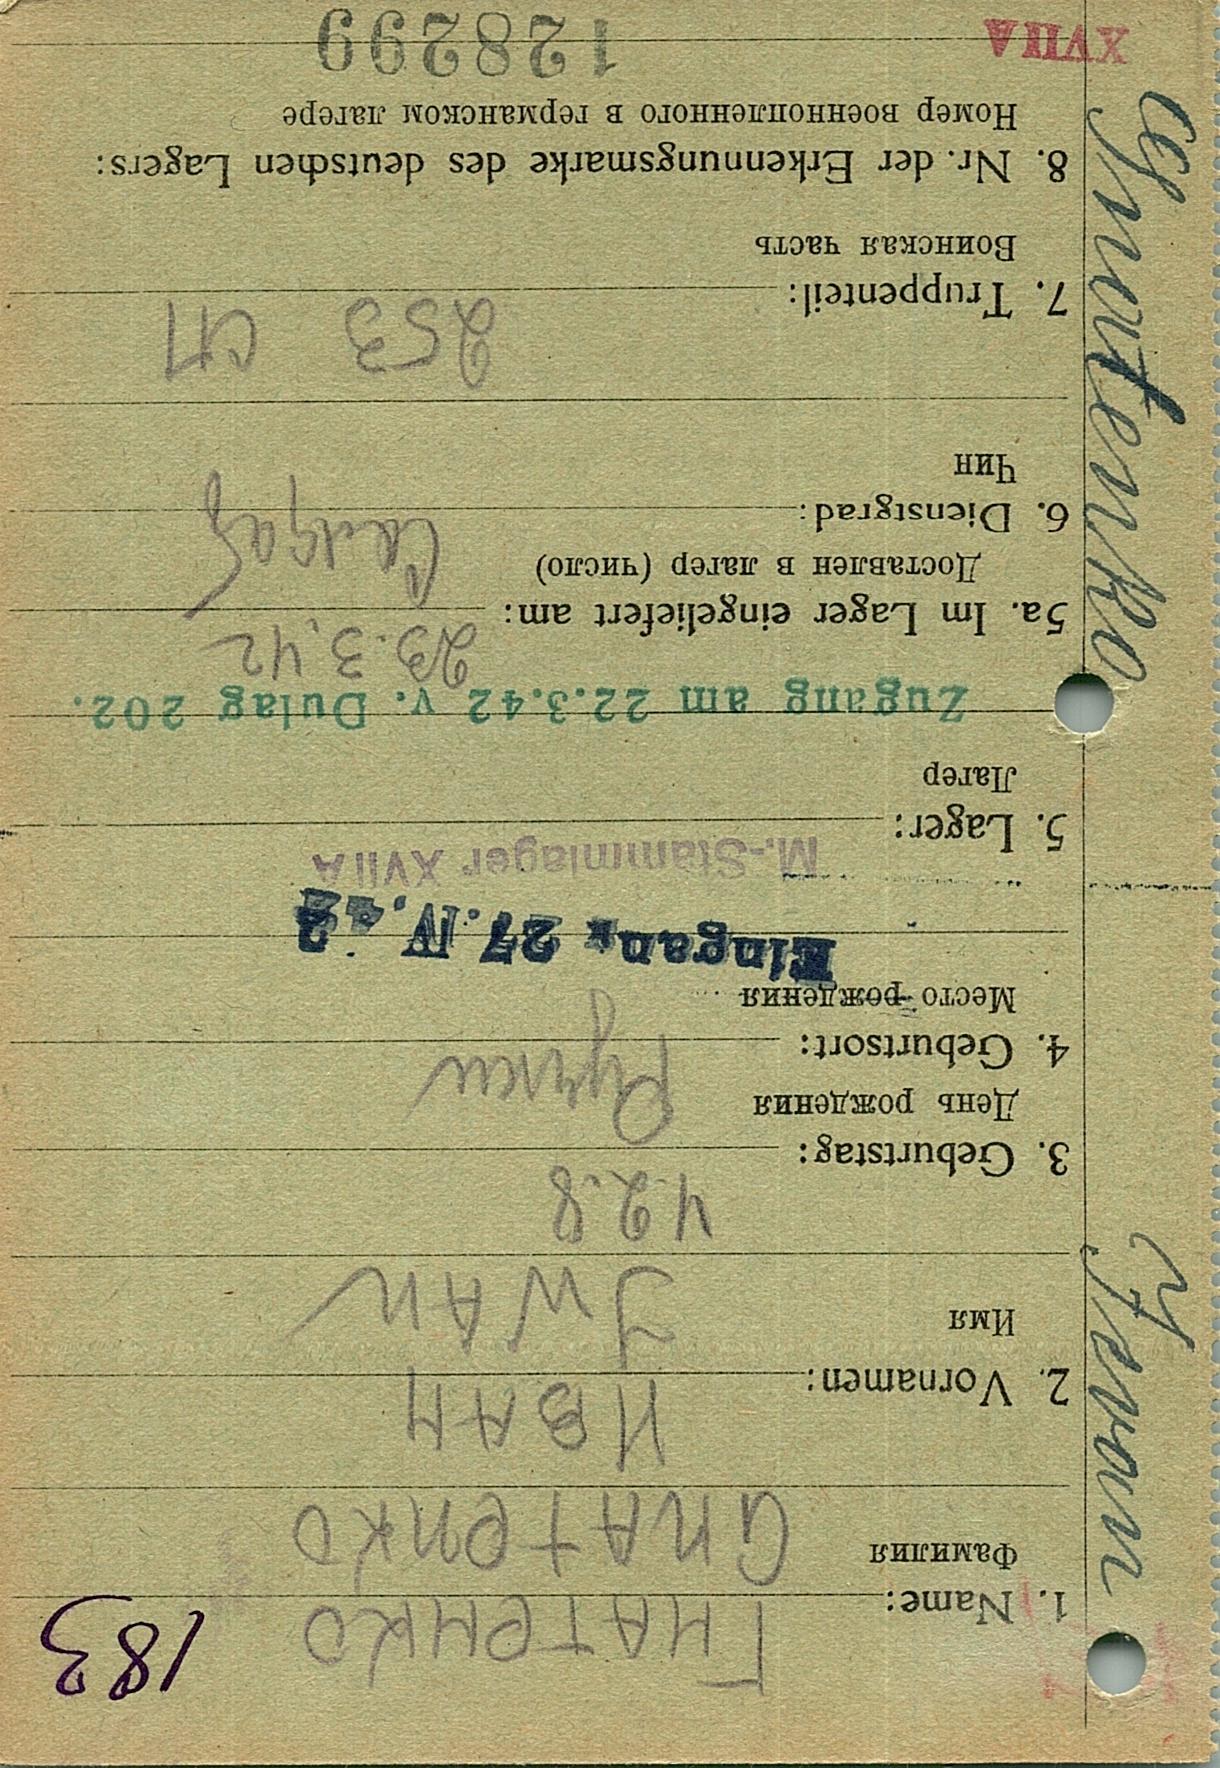 183
ГНАТЕНКО
1. Name:
Фамилия
GNATENKO
ИВАН
2. Vornamen:
Имя
JWAN
4.2.8
3. Geburtstag:
День рождения
4. Geburtsort:
Место рождения
Eingang 27.IV.42
M.-Stammlager XVII A
5. Lager:
Лагер
Zugang am 22.3.42 v. Dulag 202.
23.3.42
5a. Im Lager eingeliefert am:
Доставлен в лагер (число)
6. Dienstgrad:
Чин
253 сп
7. Truppenteil:
Воинская часть
8. Nr. der Erkennungsmarke des deutschen Lagers:
Номер военнопленного в германском лагере
128299
XVII A
Gnatenko